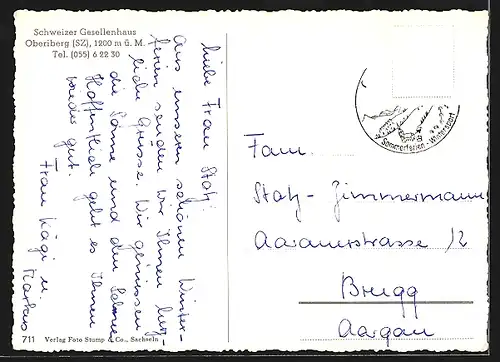 Schweizer Gesellenhaus
Oberiberg (SZ), 1200 m ü. M.
Tel. (055) 6 22 30
Liebe Frau Statz!
Aus unseren schönen Winter-
ferien senden wir Ihnen herz-
liche Grüsse. Wir geniessen
die Sonne und den Schnee
Hoffentlich geht es Ihnen
wieder gut.
Frau Kägi u
Markus
711 Verlag Foto Stump & Co., Sachseln
Sommerferien - Wintersport
Fam.
Statz-Zimmermann
Aarauerstrasse 12
Brugg
Aargau